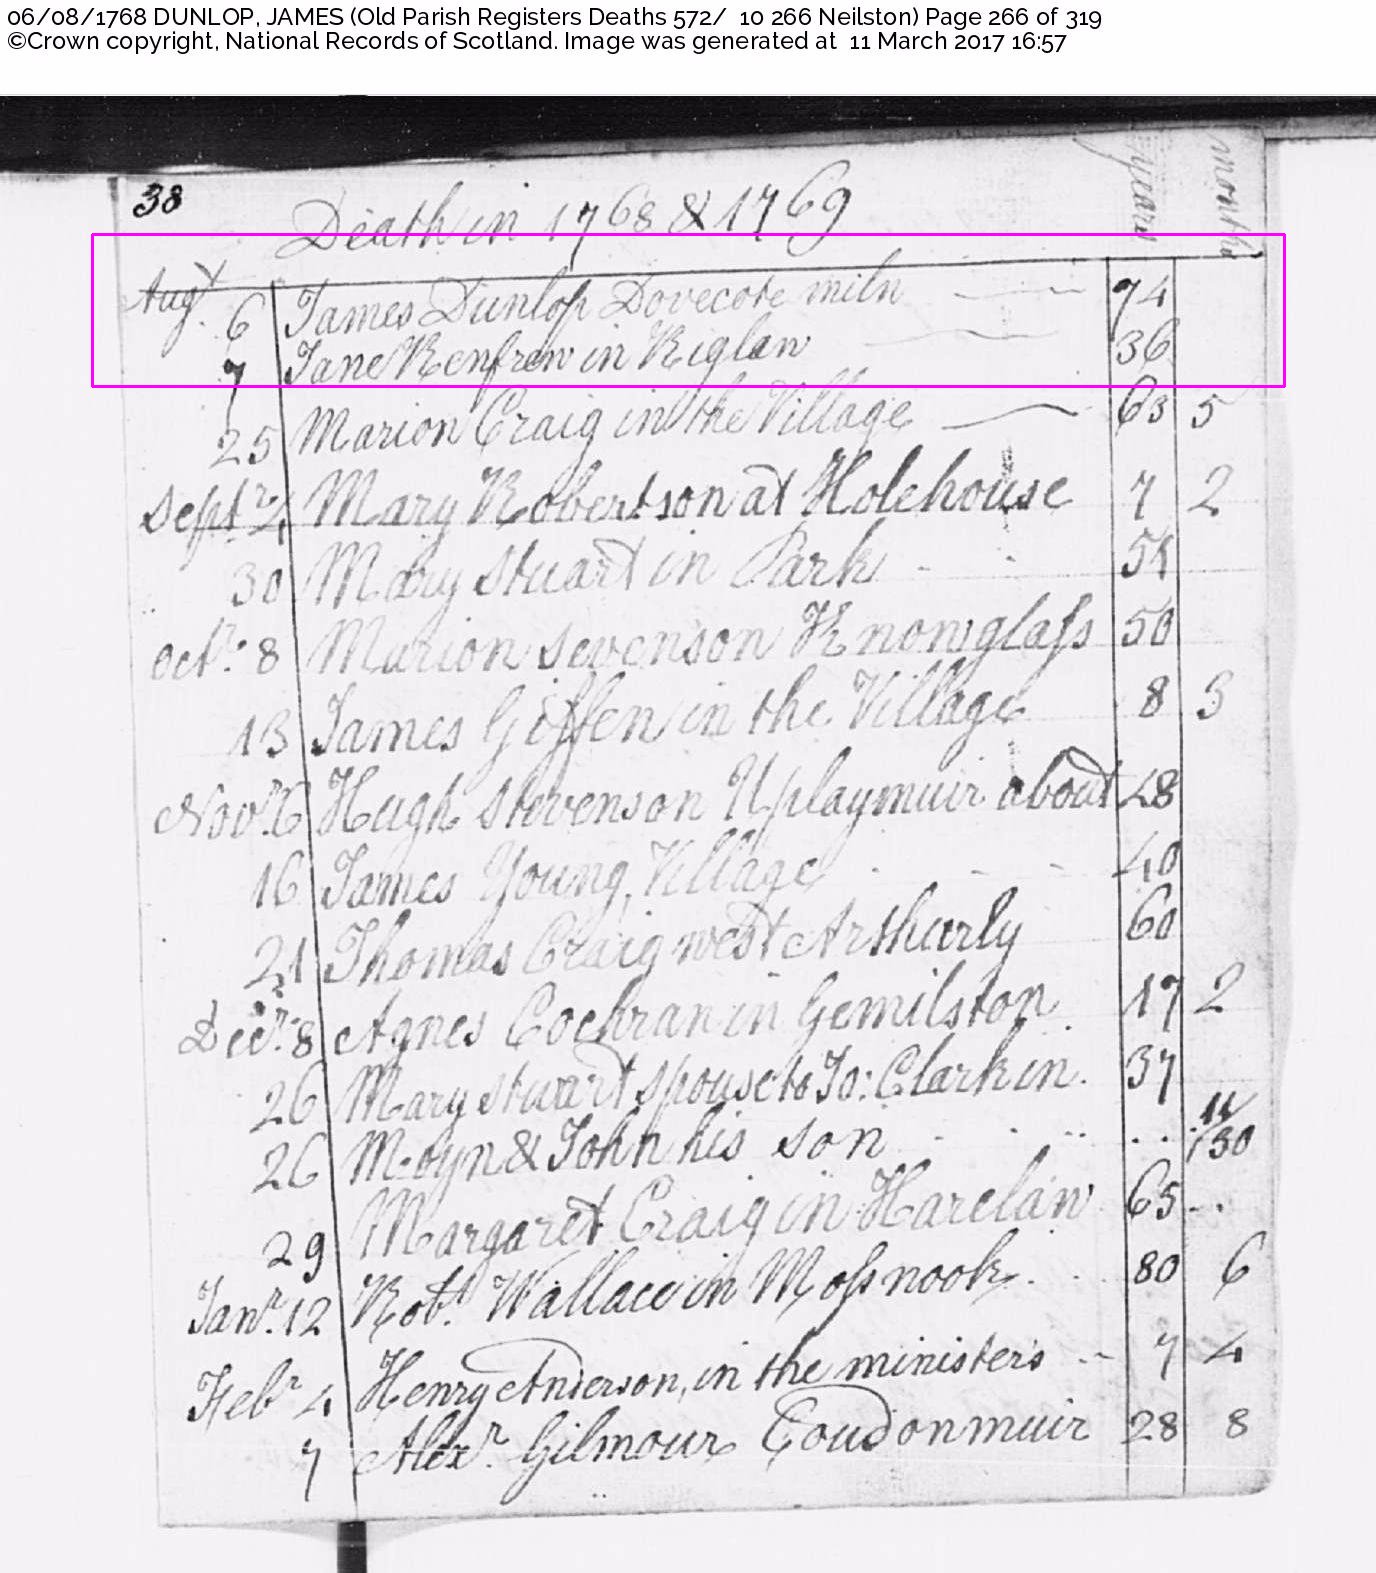 06/08/1768 DUNLOP, JAMES (Old Parish Registers Deaths 572/ 10 266 Neilston) Page 266 of 319
©Crown copyright, National Records of Scotland. Image was generated at 11 March 2017 16:57
38 Death in 1768 & 1769 years months
Augt. 6 James Dunlop Dovecote miln 74
7 Jane Renfrew in Riglaw 36
25 Marion Craig in the Village 63 5
Septr. 4 Mary Robertson at Holehouse 7 2
30 Mary Stuart in Park
octr. 8 Marion Sevenson Knowglass 50
13 James Giffen in the Village 8 3
Novr. 6 Hugh Stevenson Uplaymuir about 48
16 James Young, Village 40
21 Thomas Craig west Arthurly 60
Decr. 8 Agnes Cochran in Gemilston 17 2
26 Mary Stuart spouse to Jo: Clark in 37
26 Moyn & John his son 11/30
29 Margaret Craig in Harelaw 65
Janr. 12 Robt. Wallace in Mossnook 80 6
Febr 4 Henry Anderson, in the ministers 7 4
7 Alexr. Gilmour Loudonmuir 28 8